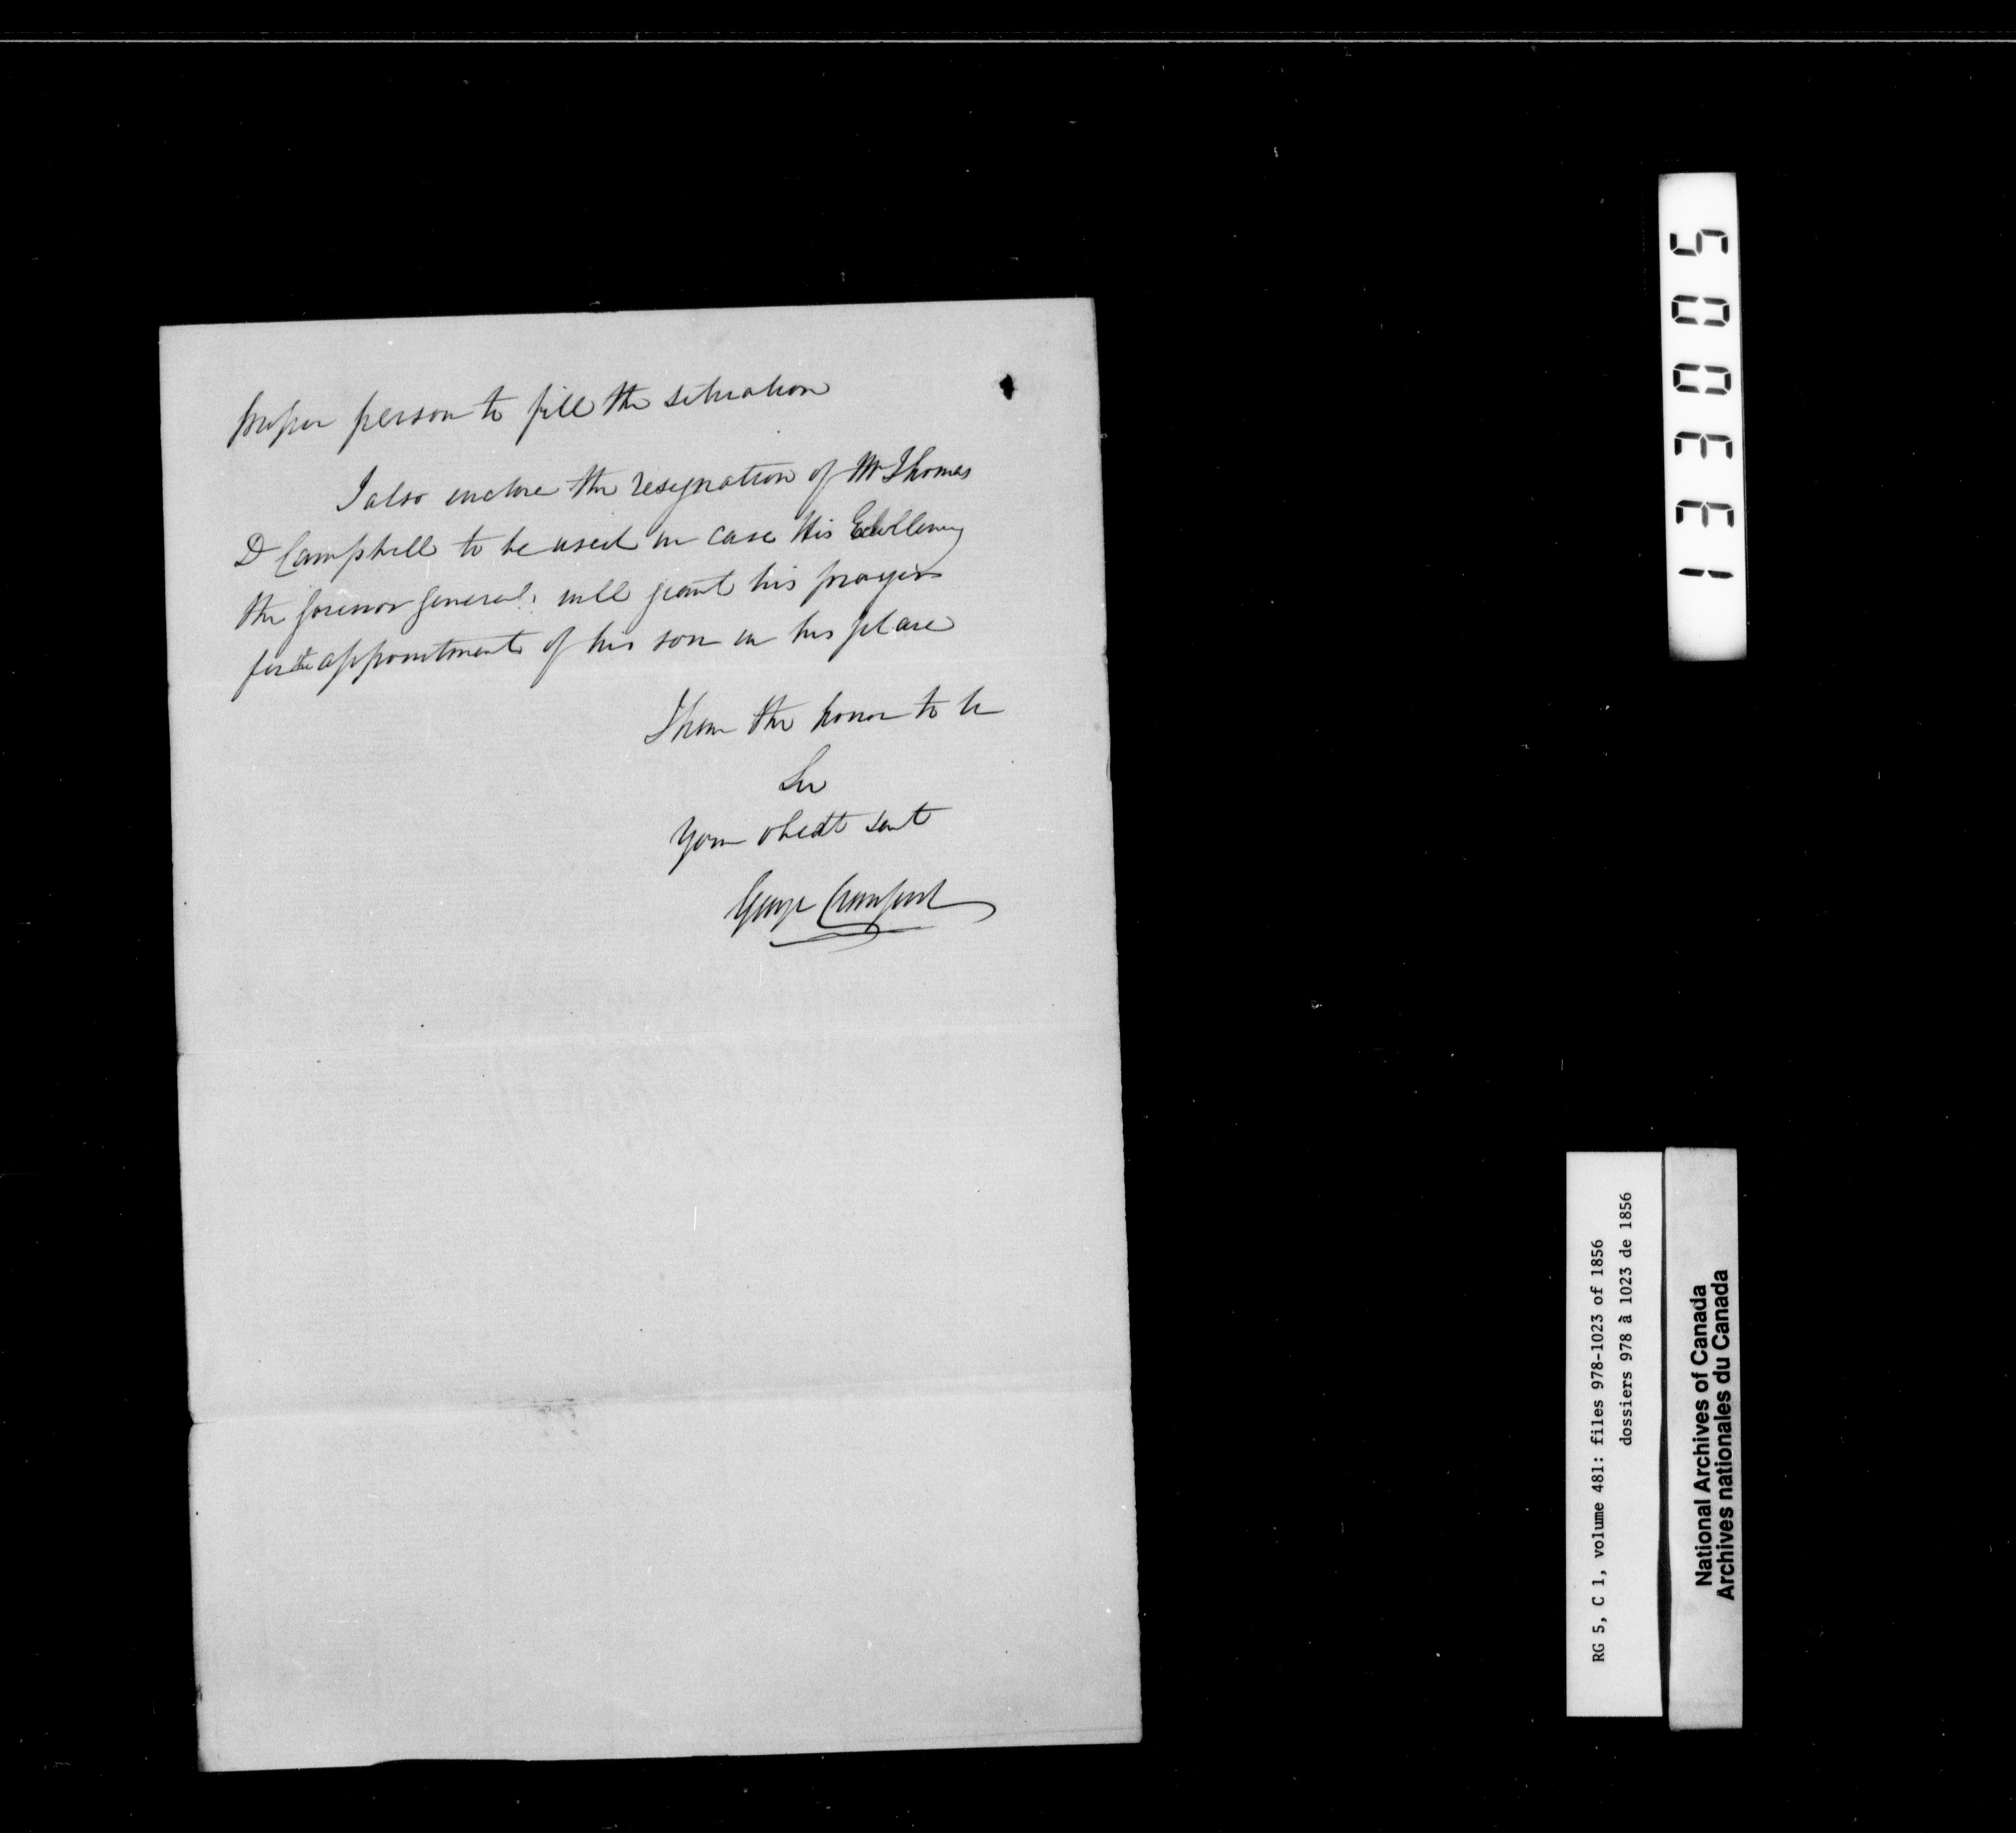 proper person to fill the situation
I also enclose the resignation of Mr Thomas
D Campbell to be used in case His Excellency
the Governor General will grant his prayer
for the appointment of his son in his place
I have the honor to be
Sir
Your obedt servt
George Crawford
133005
RG 5, C 1, volume 481: files 978-1023 of 1856
dossiers 978 à 1023 de 1856
National Archives of Canada
Archives nationales du Canada